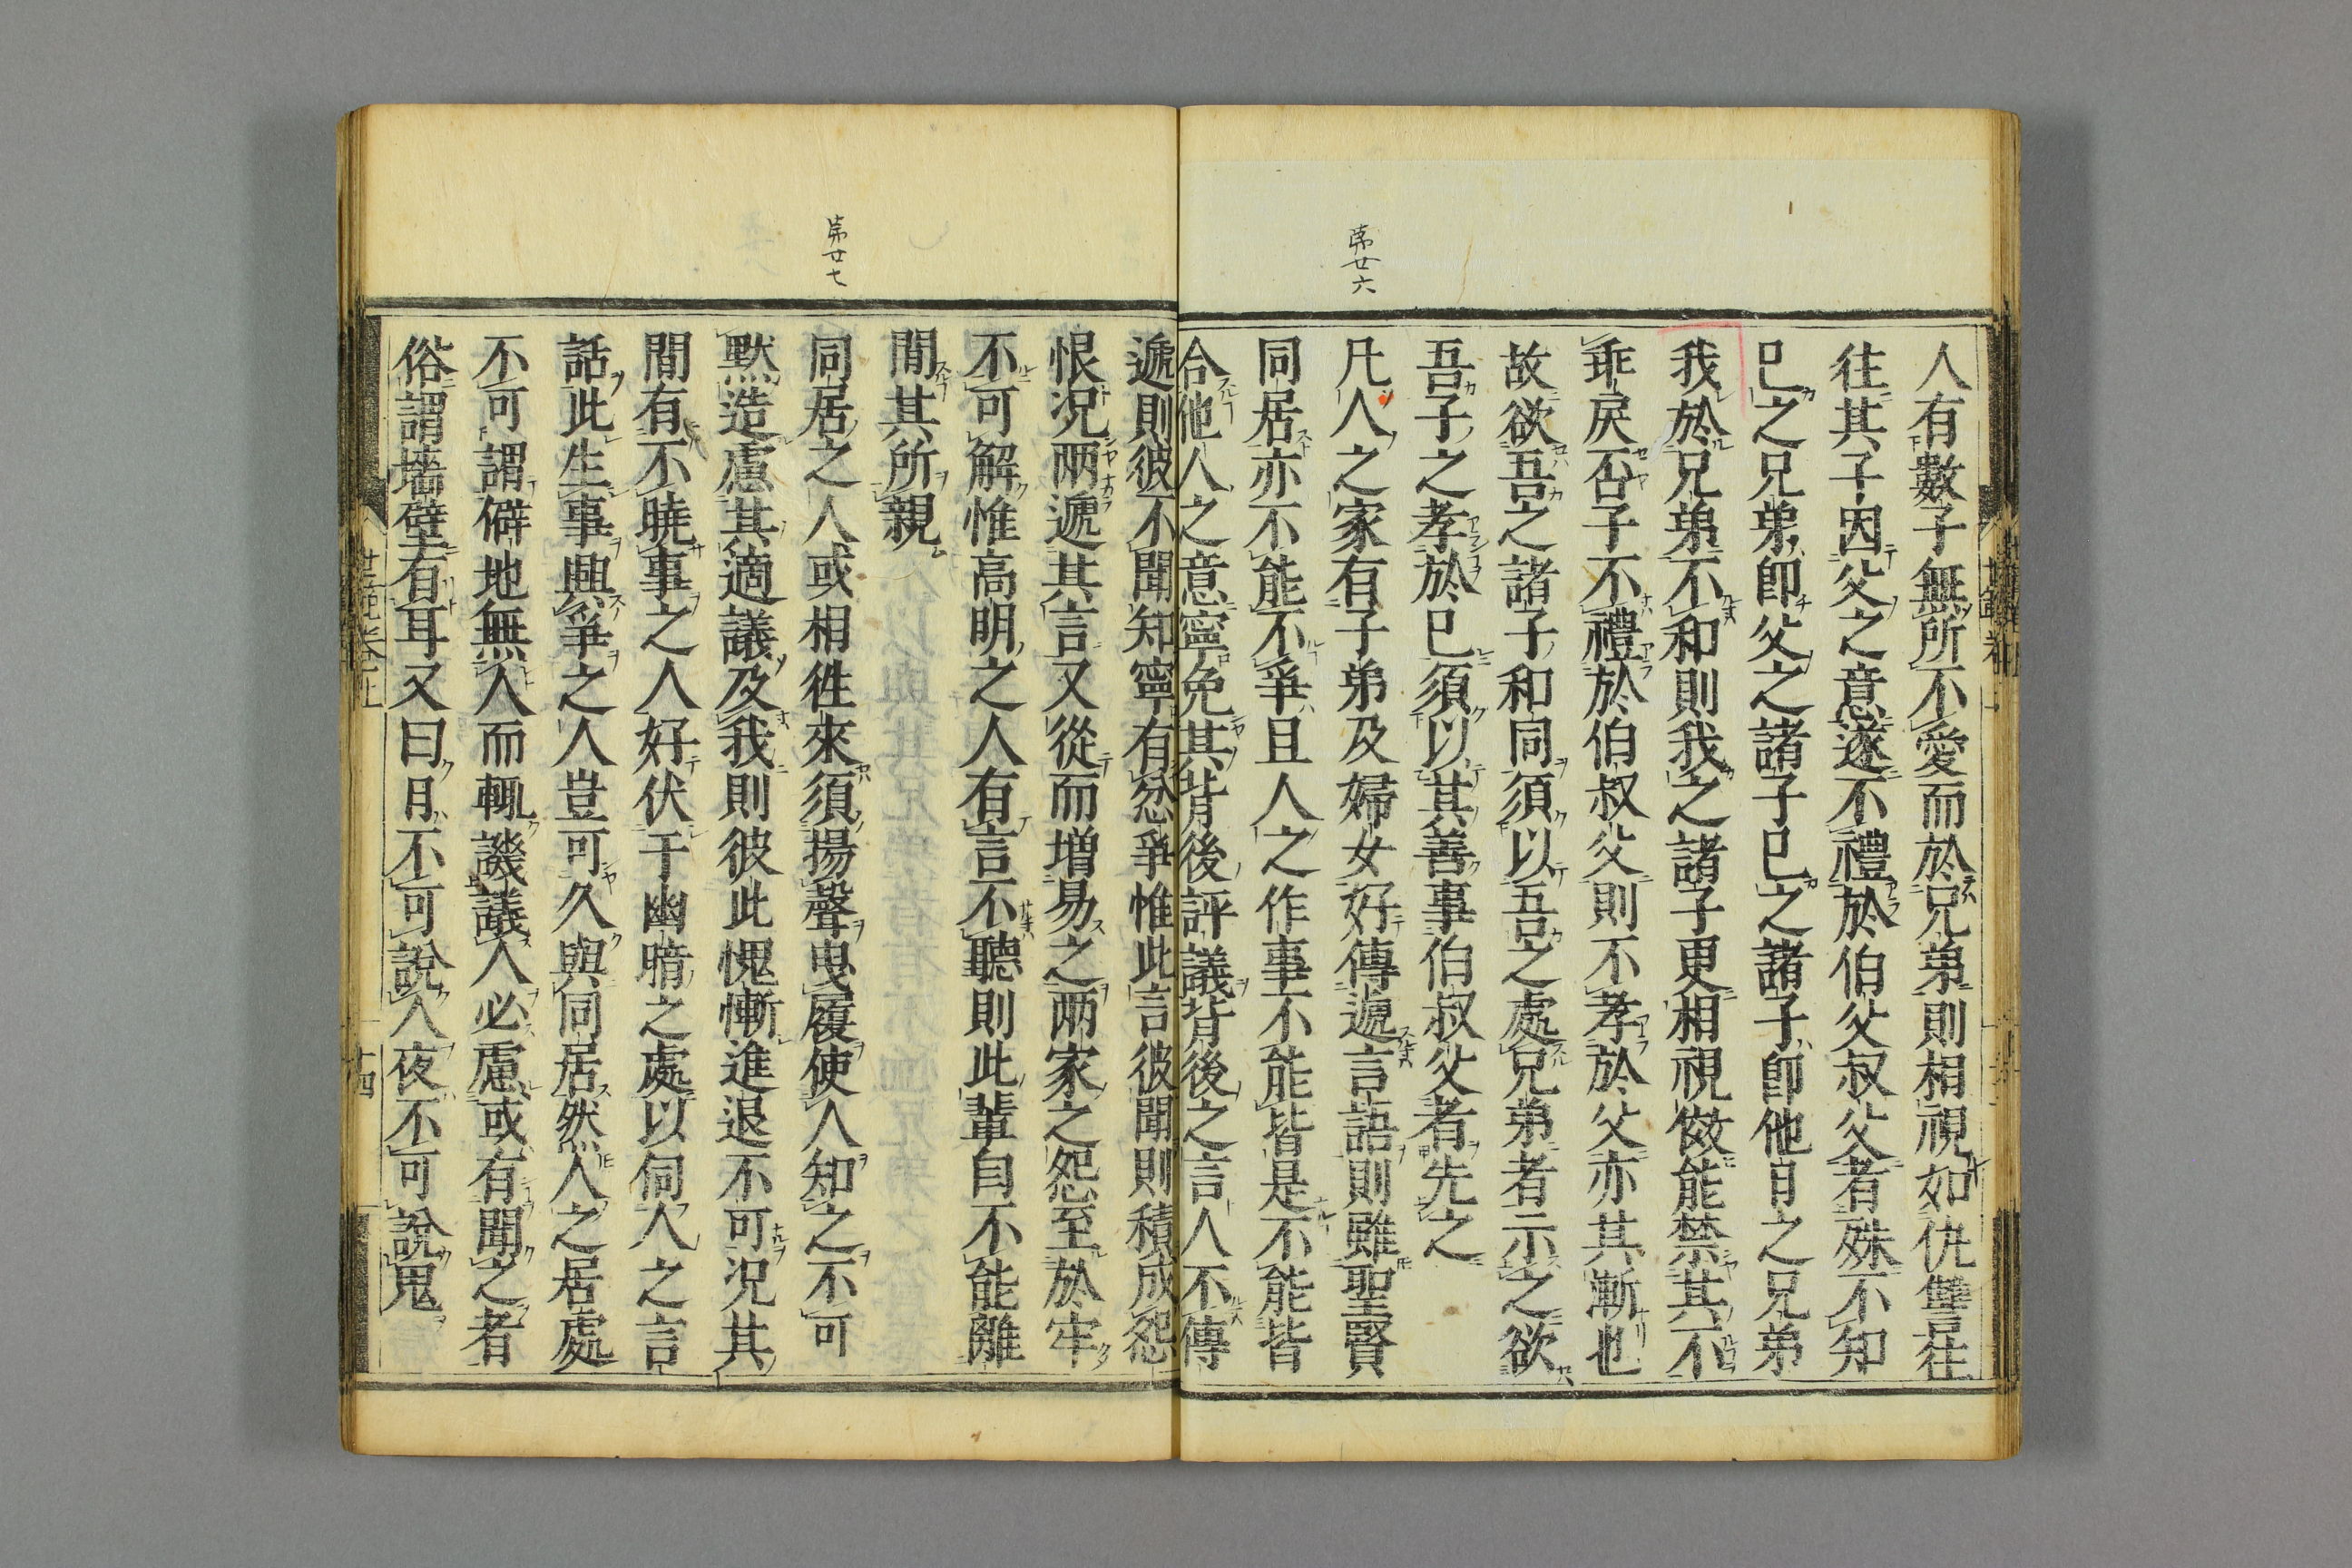 第廿六
人有數子無所不愛而於兄弟則相視如仇讐往
往其子因父之意遂不禮於伯父叔父者殊不知
已之兄弟即父之諸子已之諸子即他日之兄弟
我於兄弟不和則我之諸子更相視傚能禁其不
乖戾否子不禮於伯叔父則不孝於父亦其漸也
故欲吾之諸子和同須以吾之處兄弟者示之欲
吾子之孝於已須以其善事伯叔父者先之
凡人之家有子弟及婦女好傳遞言語則雖聖賢
同居亦不能不爭且人之作事不能皆是不能皆
合他人之意寧免其背後評議背後之言人不傳
第廿七
遞則彼不聞知寧有忿爭惟此言彼聞則積成怨
恨況兩遞其言又從而增易之兩家之怨至於牢
不可解惟高明之人有言不聽則此輩自不能離
間其所親
同居之人或相徃來須揚聲曳履使人知之不可
默造慮其適議及我則彼此愧慚進退不可況其
間有不曉事之人好伏于幽暗之處以伺人之言
話此生事興爭之人豈可久與同居然人之居處
不可謂僻地無人而輒譏議人必慮或有聞之者
俗謂墻壁有耳又曰日不可說人夜不可說鬼
十四